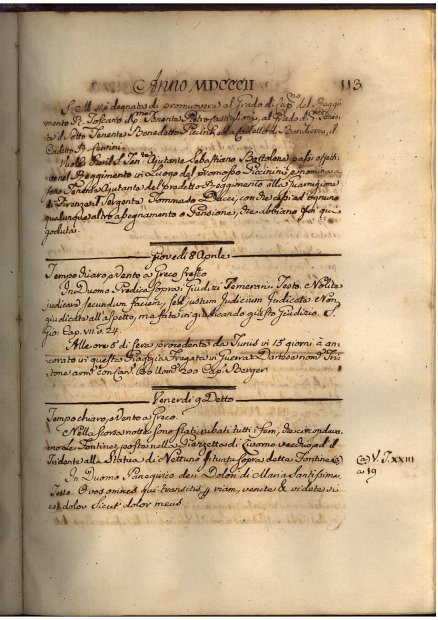 Anno MDCCCII 113
S. M. s'è degnata di promuovere al Grado di Cap.no del Reggi
mento R. Toscano il Tenente Pietro
te il Sotto Tenente Benedetto Puccini, ed a Cadetto di Bandiera, il
Cadetto
Vuole Ajutante Sebastiano Bartolone passi effetti
vo nel Reggimento in Luogo del promosso Puccinini e nomina a
Sotto Ajutante del predetto Reggimento alla Guarnigione
di Firenze il Sergente Tommaso Bacci, con che cessi ad ognuno
qualunque altro assegnamento o Pensione, che abbiano fin qui
goduta
Giovedì 8 Aprile
Tempo chiaro, e Vento a Greco fresco
In Duomo Predica sopra i Giudizi Temerari. Testo. Nolite
judicare secundum faciem, sed justum Judicium Judicate. Non
giudicate all'aspetto, ma fate in giudicando giusto Giudizio. S.
Gio: Cap. VII. v. 24.
Alle ore 5 di sera procedente da Tunis in 15 giorni à an
corato in questa Piaggia Fregata in Guerra Danese nom.ta Tri
tone arm.ta con Can.i Uom.i 200 Cap.o Berger
Venerdì 9 Detto
Tempo chiaro, e Vento a Greco.
Nella scorsa notte sono stati rubati tutti i ferri, che circondava
no Le Fontine, poste nella Piazzetta di Livorno vecchio, ed il
Tridente alla Statua di Nettuno situata sopra detta Fontine (a)
(a) V. T. XXIII
a 19
In Duomo Panegirico dei Dolori di Maria Santissima
Testo. O vos omnes qui transitis p viam, venite & videte si
est dolor sicut dolor meus